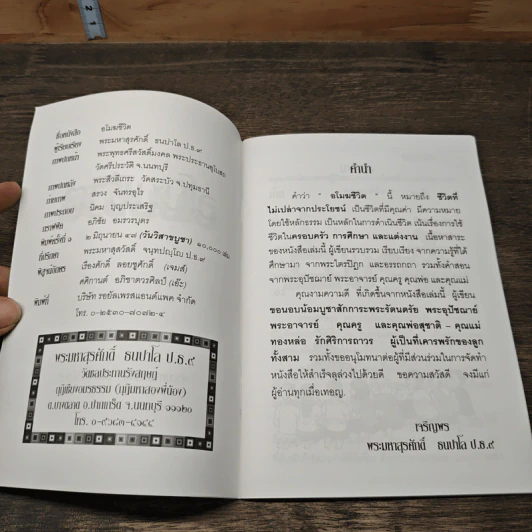 ชื่อหนังสือ อโมฆชีวิต
ผู้เรียบเรียง พระมหาสุรศักดิ์ ธนปาโล ป.ธ.๙
ภาพปกหน้า พระพุทธศรีสวัสดิ์มงคล พระประธานอุโบสถ
วัดศรีประวัติ จ.นนทบุรี
ภาพปกหลัง พระสีวลีเถระ วัดสระบัว จ.ปทุมธานี
สรวง จันทรอุไร
ภาพประกอบ นิคม บุญประเสริฐ
อภิชัย อมรวรบุตร
พิมพ์ครั้งที่ ๑ ๒ มิถุนายน ๔๗ (วันวิสาขบูชา) ๑๐,๐๐๐ เล่ม
ที่ปรึกษา พระมหาสุสวัสดิ์ จนฺทปญฺโญ ป.ธ.๙
พิสูจน์อักษร เรืองศักดิ์ ลอยชูศักดิ์ (เจมส์)
ศศิกานต์ อภิชาตวรศิลป์ (เอ๊ะ)
พิมพ์ที่ บริษัท รอยัลเพรสแอนด์แพค จำกัด
โทร. ๐-๒๕๓๐-๗๐๗๒-๕
พระมหาสุรศักดิ์ ธนปาโล ป.ธ.๙
วัดชลประทานรังสฤษดิ์
กุฏิหอพบธรรม (กุฏิมหาสองพี่น้อง)
ต.บางตลาด อ.ปากเกร็ด จ.นนทบุรี ๑๑๑๒๐
โทร.
คำนำ
คำว่า " อโมฆชีวิต " นี้ หมายถึง ชีวิตที่
ไม่เปล่าจากประโยชน์ เป็นชีวิตที่มีคุณค่า มีความหมาย
โดยใช้หลักธรรม เป็นหลักในการดำเนินชีวิต เน้นเรื่องการใช้
ชีวิตในครอบครัว การศึกษา และแต่งงาน เนื้อหาสาระ
ของหนังสือเล่มนี้ ผู้เขียนรวบรวม เรียบเรียง จากความรู้ที่ได้
ศึกษามา จากพระไตรปิฎก และอรรถกถา รวมทั้งคำสอน
จากพระอุปัชฌาย์ พระอาจารย์ คุณครู คุณพ่อ และคุณแม่
คุณงามความดี ที่เกิดขึ้นจากหนังสือเล่มนี้ ผู้เขียน
ขอนอบน้อมบูชาสักการะพระรัตนตรัย พระอุปัชฌาย์
พระอาจารย์ คุณครู และคุณพ่อสุชาติ - คุณแม่
ทองหล่อ รักศิริการถาวร ผู้เป็นที่เคารพรักของลูก
ทั้งสาม รวมทั้งขออนุโมทนาต่อผู้ที่มีส่วนร่วมในการจัดทำ
หนังสือให้สำเร็จลุล่วงไปด้วยดี ขอความสวัสดี จงมีแก่
ผู้อ่านทุกเมื่อเทอญ.
เจริญพร
พระมหาสุรศักดิ์ ธนปาโล ป.ธ.๙